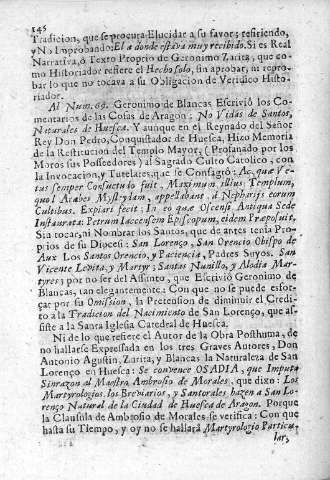 145
Tradicion, que se procura Elucidar a su favor; refiriendo,
y No Improbando: El a donde estava muy recibido. Si es Real
Narrativa, ó Texto Proprio de Geronimo Zarita, que co-
mo Historiador refiere el Hecho solo, sin aprobar, ni repro-
bar lo que no tocava a su Obligacion de Veridico Histo-
riador.
Al Num. 69. Geronimo de Blancas Escrivió los Co-
mentarios de las Cosas de Aragon: No Vidas de Santos,
Naturales de Huesca. Y aunque en el Reynado del Señor
Rey Don Pedro, Conquistador de Huesca, Hizo Memoria
de la Restitucion del Templo Mayor (Profanado por los
Moros sus Possedores) al Sagrado Culto Catolico, con
la Invocacion, y Tutelares, que se Consagró: Ac, quæ Ve-
tus semper Consuetudo fuit, Maximum illius Templum,
quod Arabes Myssydam, appellabant à Nephariis eorum
Cultibus. Expiari fecit: In eo quæ Oscensi Antiqua Sede
Instaurata: Petrum Iaccensem Episcopum, eidem Præposuit.
Sin tocar, ni Nombrar los Santos, que de antes tenia Pro-
prios de su Diocesi: San Lorenço, San Orencio Obispo de
Aux Los Santos Orencio, y Paciencia, Padres Suyos. San
Vicente Levita, y Martyr; Santas Nunillo, y Alodia Mar-
tyres; por no ser del Assunto, que Escrivió Geronimo de
Blancas, tan elegantemente: Con que no se puede esfor-
çar por su Omission, la Pretension de diminuir el Credi-
to a la Tradicion del Nacimiento de San Lorenço, que as-
siste a la Santa Iglesia Catedral de Huesca.
Ni de lo que refiere el Autor de la Obra Posthuma, de
no hallarse Expressada en los tres Graves Autores, Don
Antonio Agustin, Zarita, y Blancas la Naturaleza de San
Lorenço en Huesca: Se convence OSADIA, que Imputa
Sinrazon al Maestro Ambrosio de Morales, que dixo: Los
Martyrologios, los Breviarios, y Santorales, hazen a San Lo-
renço Natural de la Ciudad de Huesca de Aragon. Porque
la Clausula de Ambrosio de Morales se verifica: Con que
hasta su Tiempo, y oy no se hallará Martyrologio Particu-
lar,